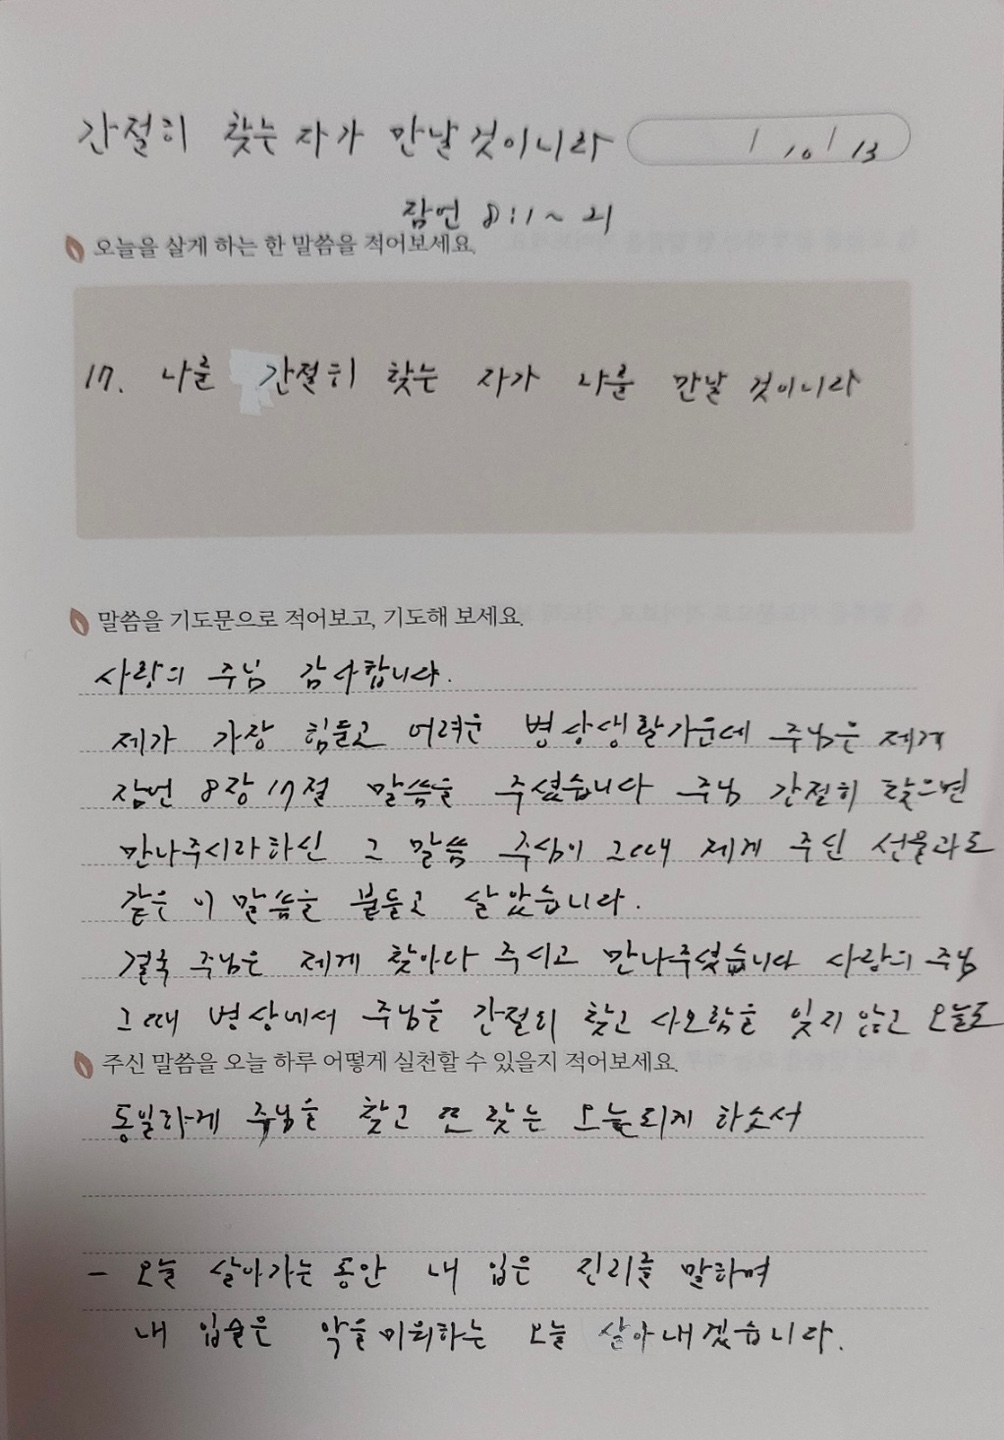 간절히 찾는 자가 만날 것이니라 / 10 / 13
잠언 8:1~21
오늘을 살게 하는 한 말씀을 적어보세요.
17. 나를 간절히 찾는 자가 나를 만날 것이니라
말씀을 기도문으로 적어보고, 기도해 보세요.
사랑의 주님 감사합니다.
제가 가장 힘들고 어려운 병상생활가운데 주님은 제게
잠언 8장 17절 말씀을 주셨습니다 주님 간절히 찾으면
만나주시리라하신 그 말씀 주님이 그때 제게 주신 선물과도
같은 이 말씀을 붙들고 살았습니다.
결국 주님은 제게 찾아와 주시고 만나주셨습니다 사랑의 주님
그때 병상에서 주님을 간절히 찾고 사모함을 잊지 않고 오늘도
주신 말씀을 오늘 하루 어떻게 실천할 수 있을지 적어보세요.
동일하게 주님을 찾고 또 찾는 오늘되게 하소서
- 오늘 살아가는 동안 내 입은 진리를 말하며
내 입술은 악을 미워하는 오늘 살아내겠습니다.